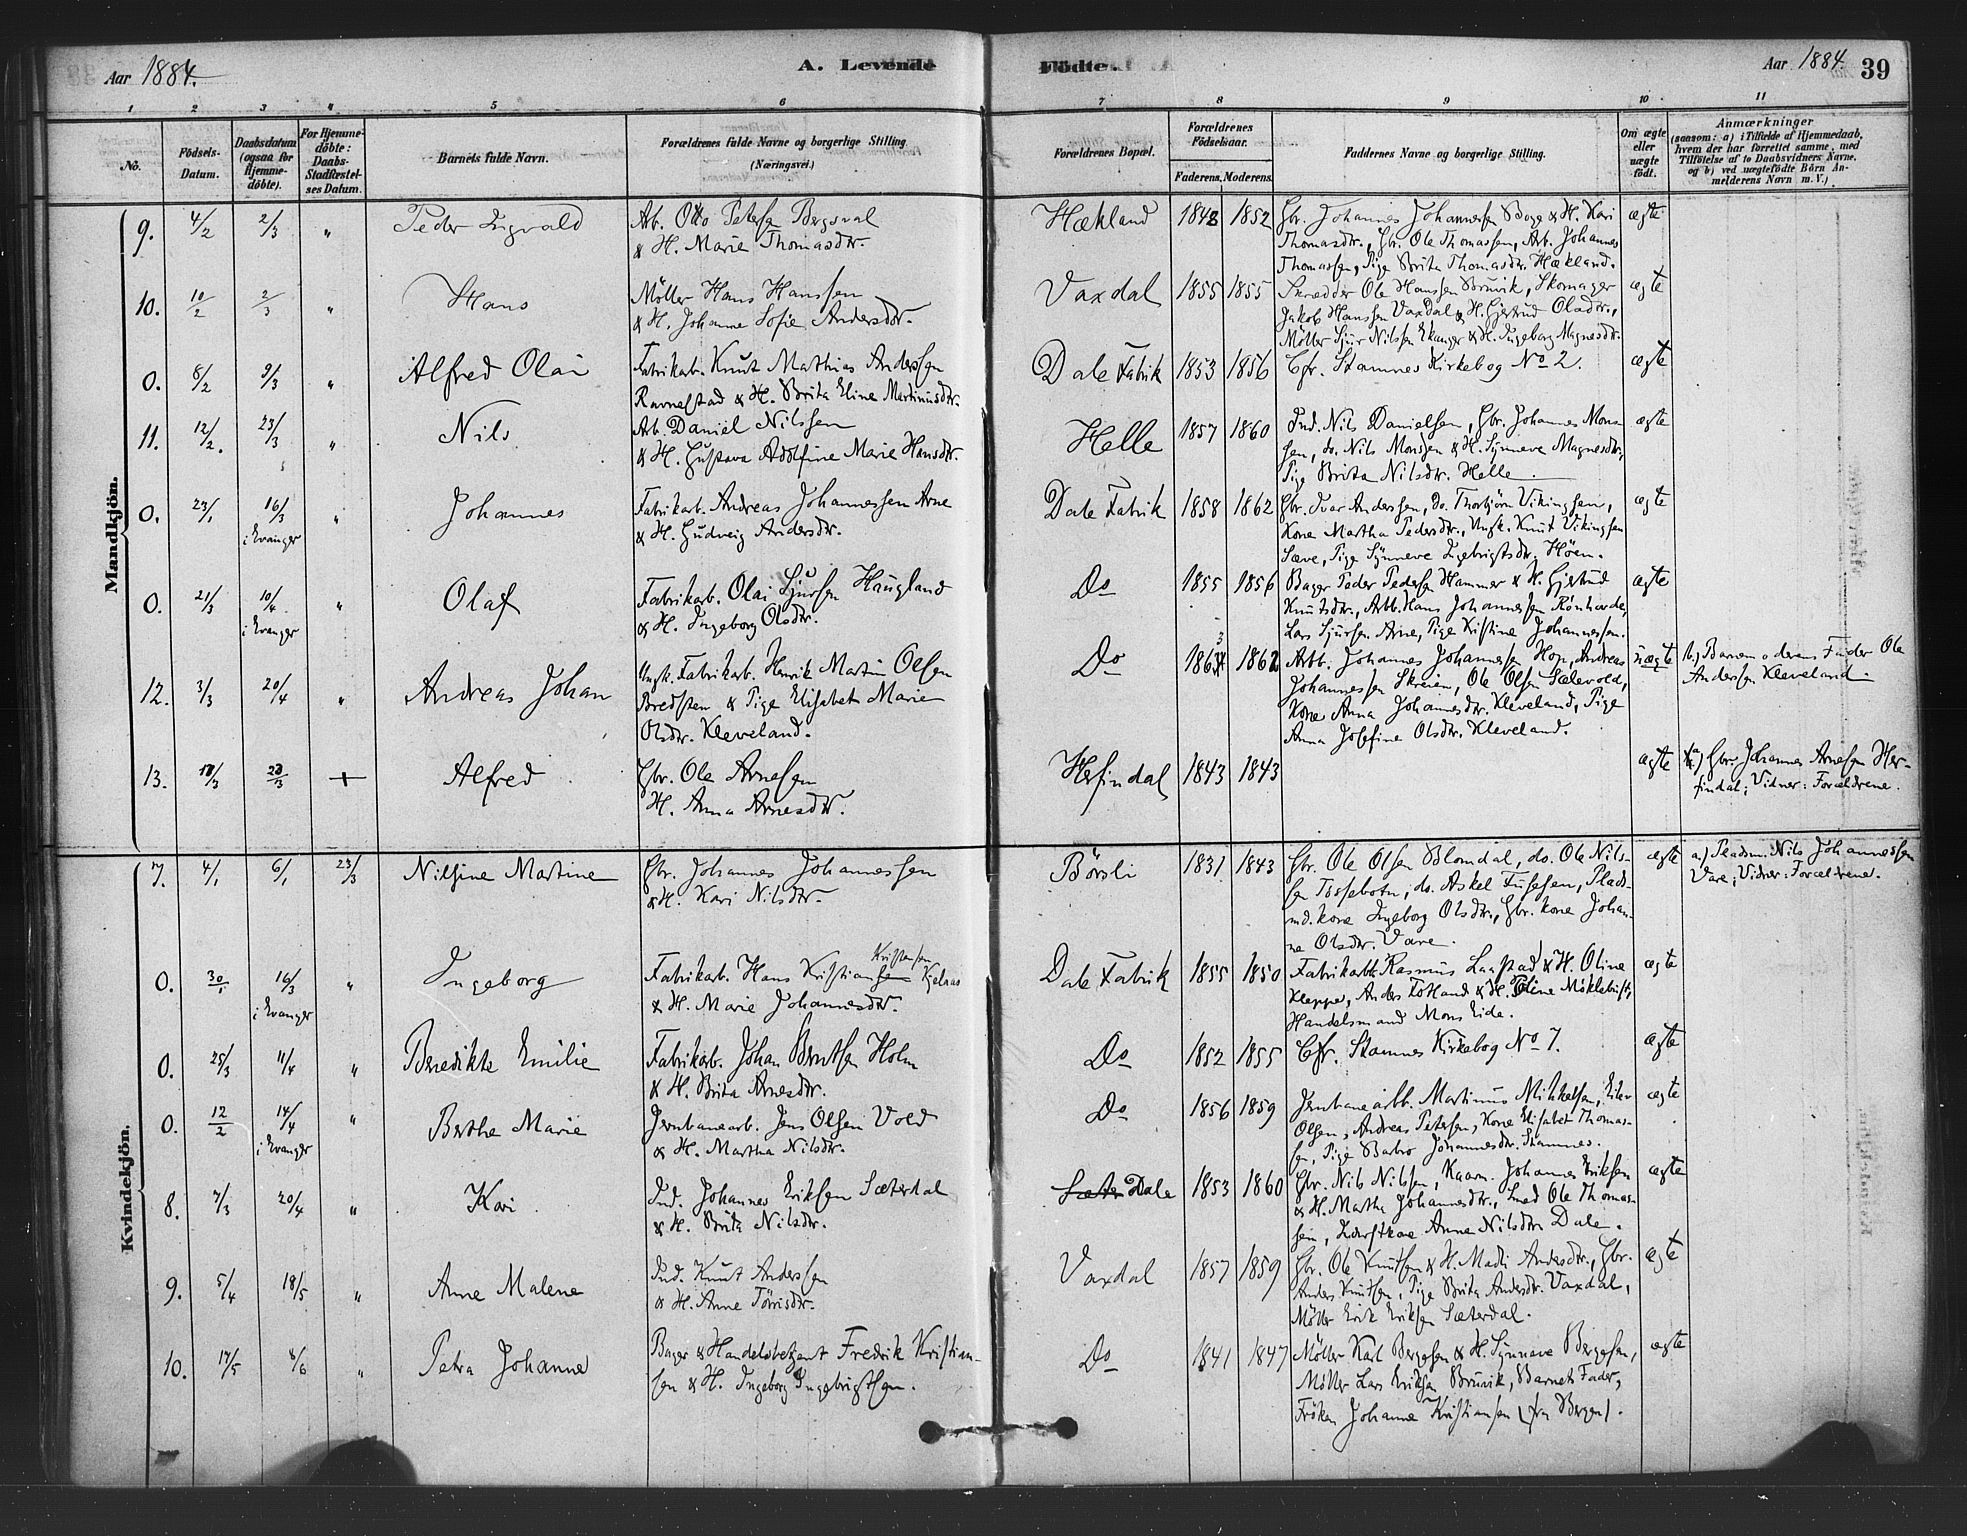 Aar 1884.
A. Levende
Födte.
Aar 1884. 39
1 2 3 4 5 6 7 8 9 10 11
No.
Födsels-
Datum.
Daabsdatum
(ogsaa for
Hjemme-
döbte).
For Hjemme-
döbte:
Daabs-
Stadfæstel-
ses Datum.
Barnets fulde Navn.
Forældrenes fulde Navne og borgerlige Stilling
(Næringsvei.)
Forældrenes Bopæl.
Forældrenes
Födselsaar.
Faderens. Moderens.
Faddernes Navne og borgerlige Stilling.
Om ægte
eller
uægte
födt.
Anmærkninger
(saasom: a) i Tilfælde af Hjemmedaab,
hvem der har forrettet samme, med
Tilföielse af to Daabsvidners Navne.
og b) ved uægtefödte Börn An-
melderens Navn m. V.)
Mandkjön.
9. 4/2 2/3 " Peder Sigvald
Arb. Otto Petersen Bergsval
& H. Marie Thomasdtr.
Hækland 1848 1852
Gbr. Johannes Johannessen Boge & H. Kari
Thomasdtr., Gbr. Ole Thomassen, Arb. Johannes
Thomassen, Pige Brita Thomasdtr. Hækland.
ægte
10. 10/2 2/3 " Hans
Möller Hans Hanssen
& H. Johanne Sofie Andersdtr.
Vaxdal 1855 1855
Skrædder Ole Hanssen Bruvik, Skomager
Jakob Hanssen Vaxdal & H. Gjertrud Olsdtr.,
Möller Sjur Nilssen Ekanger & H. Ingeborg Magnesdtr.
ægte
0. 8/2 9/3 " Alfred Olai
Fabrikarb. Knut Mathias Anderssen
Ravnestad & H. Brita Eline Martinusdtr.
Dale Fabrik 1853 1856
Cfr. Stamnes Kirkebog No 2.
ægte
11. 12/2. 23/3 " Nils
Arb. Daniel Nilssen
& H. Gustava Adolfine Marie Hansdtr.
Helle 1857 1860
Ind. Nils Danielsen, Gbr. Johannes Mons-
sen, do. Nils Monssen & H. Synneve Magnesdtr.,
Pige Brita Nilsdtr. Helle
ægte
0. 23/1 16/3 i Evanger " Johannes
Fabrikarb. Andreas Johannessen Arne
& H. Gudveig Andersdtr.
Dale Fabrik 1858 1862
Gbr. Ivar Anderssen, Do. Thorbjörn Vikingsen,
Kone Martha Pedersdtr., Ungk. Knut Vikingsen
Sæve, Pige Synneve Ingebrigtsdtr. Höen.
ægte
0. 21/3 10/4 i Evanger " Olaf
Fabrikarb. Olai Sjursen Haugland
& H. Ingeborg Olsdtr.
Do 1855 1856
Bager Peder Pedersen Hammer & H. Gjertrud
Knutsdtr., Arbb. Hans Johannessen Rönharde,
Lars Sjursen Arne, Pige Kristine Johannessen.
ægte
12. 3/3 20/4 " Andreas Johan
Ungk. Fabrikarb. Henrik Martin Olsen
Bredsten & Pige Elisabet Marie
Olsdtr. Kleveland.
Do 1863 1862
Arbb. Johannes Johannessen Hop, Andreas
Johannessen Skreien, Ole Olsen Sælevold,
Kone Anna Johannesdtr. Kleveland, Pige
Anna Josefine Olsdtr. Kleveland.
uægte
b.) Barnemoderens Fader Ole
Anderssen Kleveland.
13. 23/3 + Alfred
Gbr. Ole Arnesen
H. Anna Arnesdtr.
Herfindal 1843 1843
ægte
a) Gbr. Johannes Arnesen Her-
findal; Vidner: Forældrene.
Kvindekjön.
7. 4/1 6/1 23/3 Nilsine Martine
Gbr. Johannes Johannessen
& H. Kari Nilsdtr.
Börsli 1831 1843
Gbr. Ole Olsen Blomdal, do. Ole Nils-
sen Tossebotn, do. Askel Fusesen, Plads-
md. kone Ingeborg Olsdtr., Gbr. kone Johan-
ne Olsdtr. Vare.
ægte
a) Pladsm. Nils Johannessen
Vare; Vidner: Forældrene.
0. 30/1 16/3 i Evanger " Ingeborg
Kristensen
Fabrikarb. Hans Kristiansen Kjelnæs
& H. Marie Johannesdtr.
Dale Fabrik 1855 1850
Fabrikarbb. Rasmus Laastad & H. Oline
Kleppe, Anders Totland & H. Oline Möklebust,
Handelsmand Mons Eide.
ægte
0. 25/3 11/4 " Benedikte Emilie
Fabrikarb. Johan Berntsen Holm
& H. Brita Arnesdtr.
Do 1852 1855
Cfr. Stamnes Kirkebog No 7.
ægte
0. 12/2 14/4 i Evanger " Berthe Marie
Jernbanearb. Jens Olsen Vold
& H. Martha Nilsdtr.
Do 1856 1859
Jernbanearbb. Martinus Mikkelsen, Eiler
Olsen, Andreas Petersen, Kone Elisabet Thomas-
sen, Pige Barbro Johannesdtr. Stamnes.
ægte
8. 7/3 20/4 " Kari
Ind. Johannes Eriksen Sæterdal
& H. Brita Nilsdtr.
Dale 1853 1860
Gbr. Nils Nilssen, Kaarm. Johannes Eriksen
& H. Martha Johannesdtr., Smed Ole Thomas-
sen, Anne Nilsdtr. Dale.
ægte
9. 5/4 18/5 " Anne Malene
Ind. Knut Anderssen
& H. Anne Törrisdtr.
Vaxdal 1857 1859
Gbr. Ole Knutsen & H. Madli Andersdtr., Gbr.
Anders Knutsen, Pige Brita Andersdtr. Vaxdal,
Möller Erik Eriksen Sæterdal.
ægte
10. 17/5 8/6 " Petra Johanne
Bager & Handelsbetjent Fredrik Kristian-
sen & H. Ingeborg Ingebrigtsen.
Do 1841 1847
Möller Karl Bergesen & H. Synneve Bergesen,
Möller Lars Eriksen Bruvik, Barnets Fader,
Fröken Johanne Kristiansen (fra Bergen).
ægte